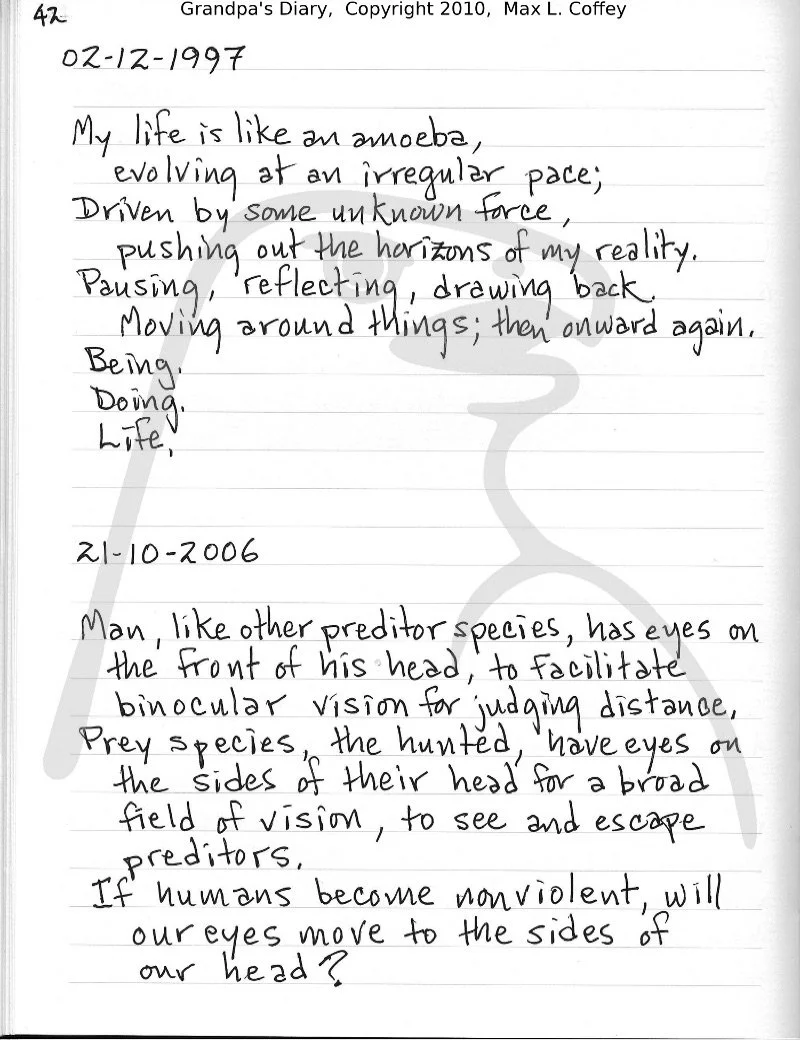 42
Grandpa's Diary, Copyright 2010, Max L. Coffey
02-12-1997
My life is like an amoeba,
evolving at an irregular pace;
Driven by some unknown force,
pushing out the horizons of my reality.
Pausing, reflecting, drawing back.
Moving around things; then onward again.
Being.
Doing.
Life.
21-10-2006
Man, like other preditor species, has eyes on
the front of his head, to facilitate
binocular vision for judging distance.
Prey species, the hunted, have eyes on
the sides of their head for a broad
field of vision, to see and escape
preditors.
If humans become nonviolent, will
our eyes move to the sides of
our head?